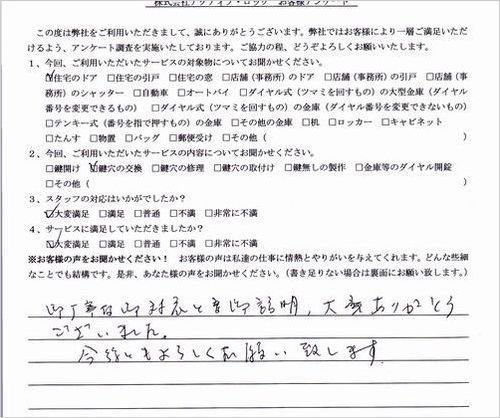 株式会社アクアイン・ロック お客様アンケート
この度は弊社をご利用いただきまして、誠にありがとうございます。弊社ではお客様により一層ご満足いただ
けるよう、アンケート調査を実施いたしております。ご協力の程、どうぞよろしくお願いいたします。
1、今回、ご利用いただいたサービスの対象物についてお聞かせください。
☑住宅のドア □住宅の引戸 □住宅の窓 □店舗(事務所)のドア □店舗(事務所)の引戸 □店舗(事
務所)のシャッター □自動車 □オートバイ □ダイヤル式(ツマミを回すもの)の大型金庫(ダイヤル
番号を変更できるもの) □ダイヤル式(ツマミを回すもの)の金庫(ダイヤル番号を変更できないもの)
□テンキー式(番号を指で押すもの)の金庫 □その他の金庫 □机 □ロッカー □キャビネット
□たんす □物置 □バッグ □郵便受け □その他( )
2、今回、ご利用いただいたサービスの内容についてお聞かせください。
□鍵開け ☑鍵穴の交換 □鍵穴の修理 □鍵穴の取付け □鍵無しの製作 □金庫等のダイヤル開錠
□その他( )
3、スタッフの対応はいかがでしたか?
☑大変満足 □満足 □普通 □不満 □非常に不満
4、サービスに満足していただきましたか?
☑大変満足 □満足 □普通 □不満 □非常に不満
※お客様の声をお聞かせください! お客様の声は私達の仕事に情熱とやりがいを与えてくれます。どんな些細
なことでも結構です。是非、あなた様の声をお聞かせください。(書き足りない場合は裏面にお願い致します。)
御丁寧な御対応と御説明、大変ありがとう
ございました。
今後ともよろしくお願い致します。